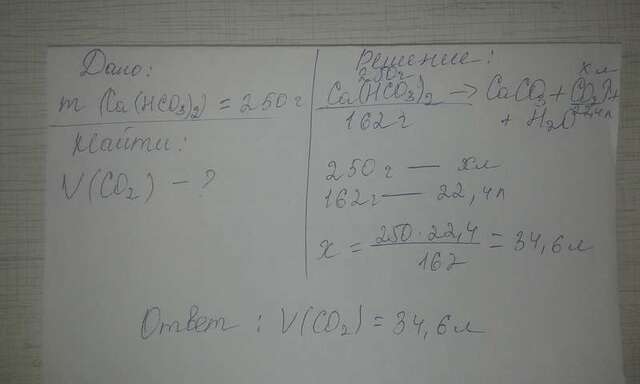 Дано:
m (Ca(HCO₃)₂) = 250 г
Найти:
V(CO₂) – ?
Решение:
250г x л
Ca(HCO₃)₂ → CaCO₃ + CO₂↑ +
162 г + H₂O 22,4л
250г — xл
162г — 22,4л
x = 250·22,4 / 162 = 34,6л
Ответ : V(CO₂) = 34,6л